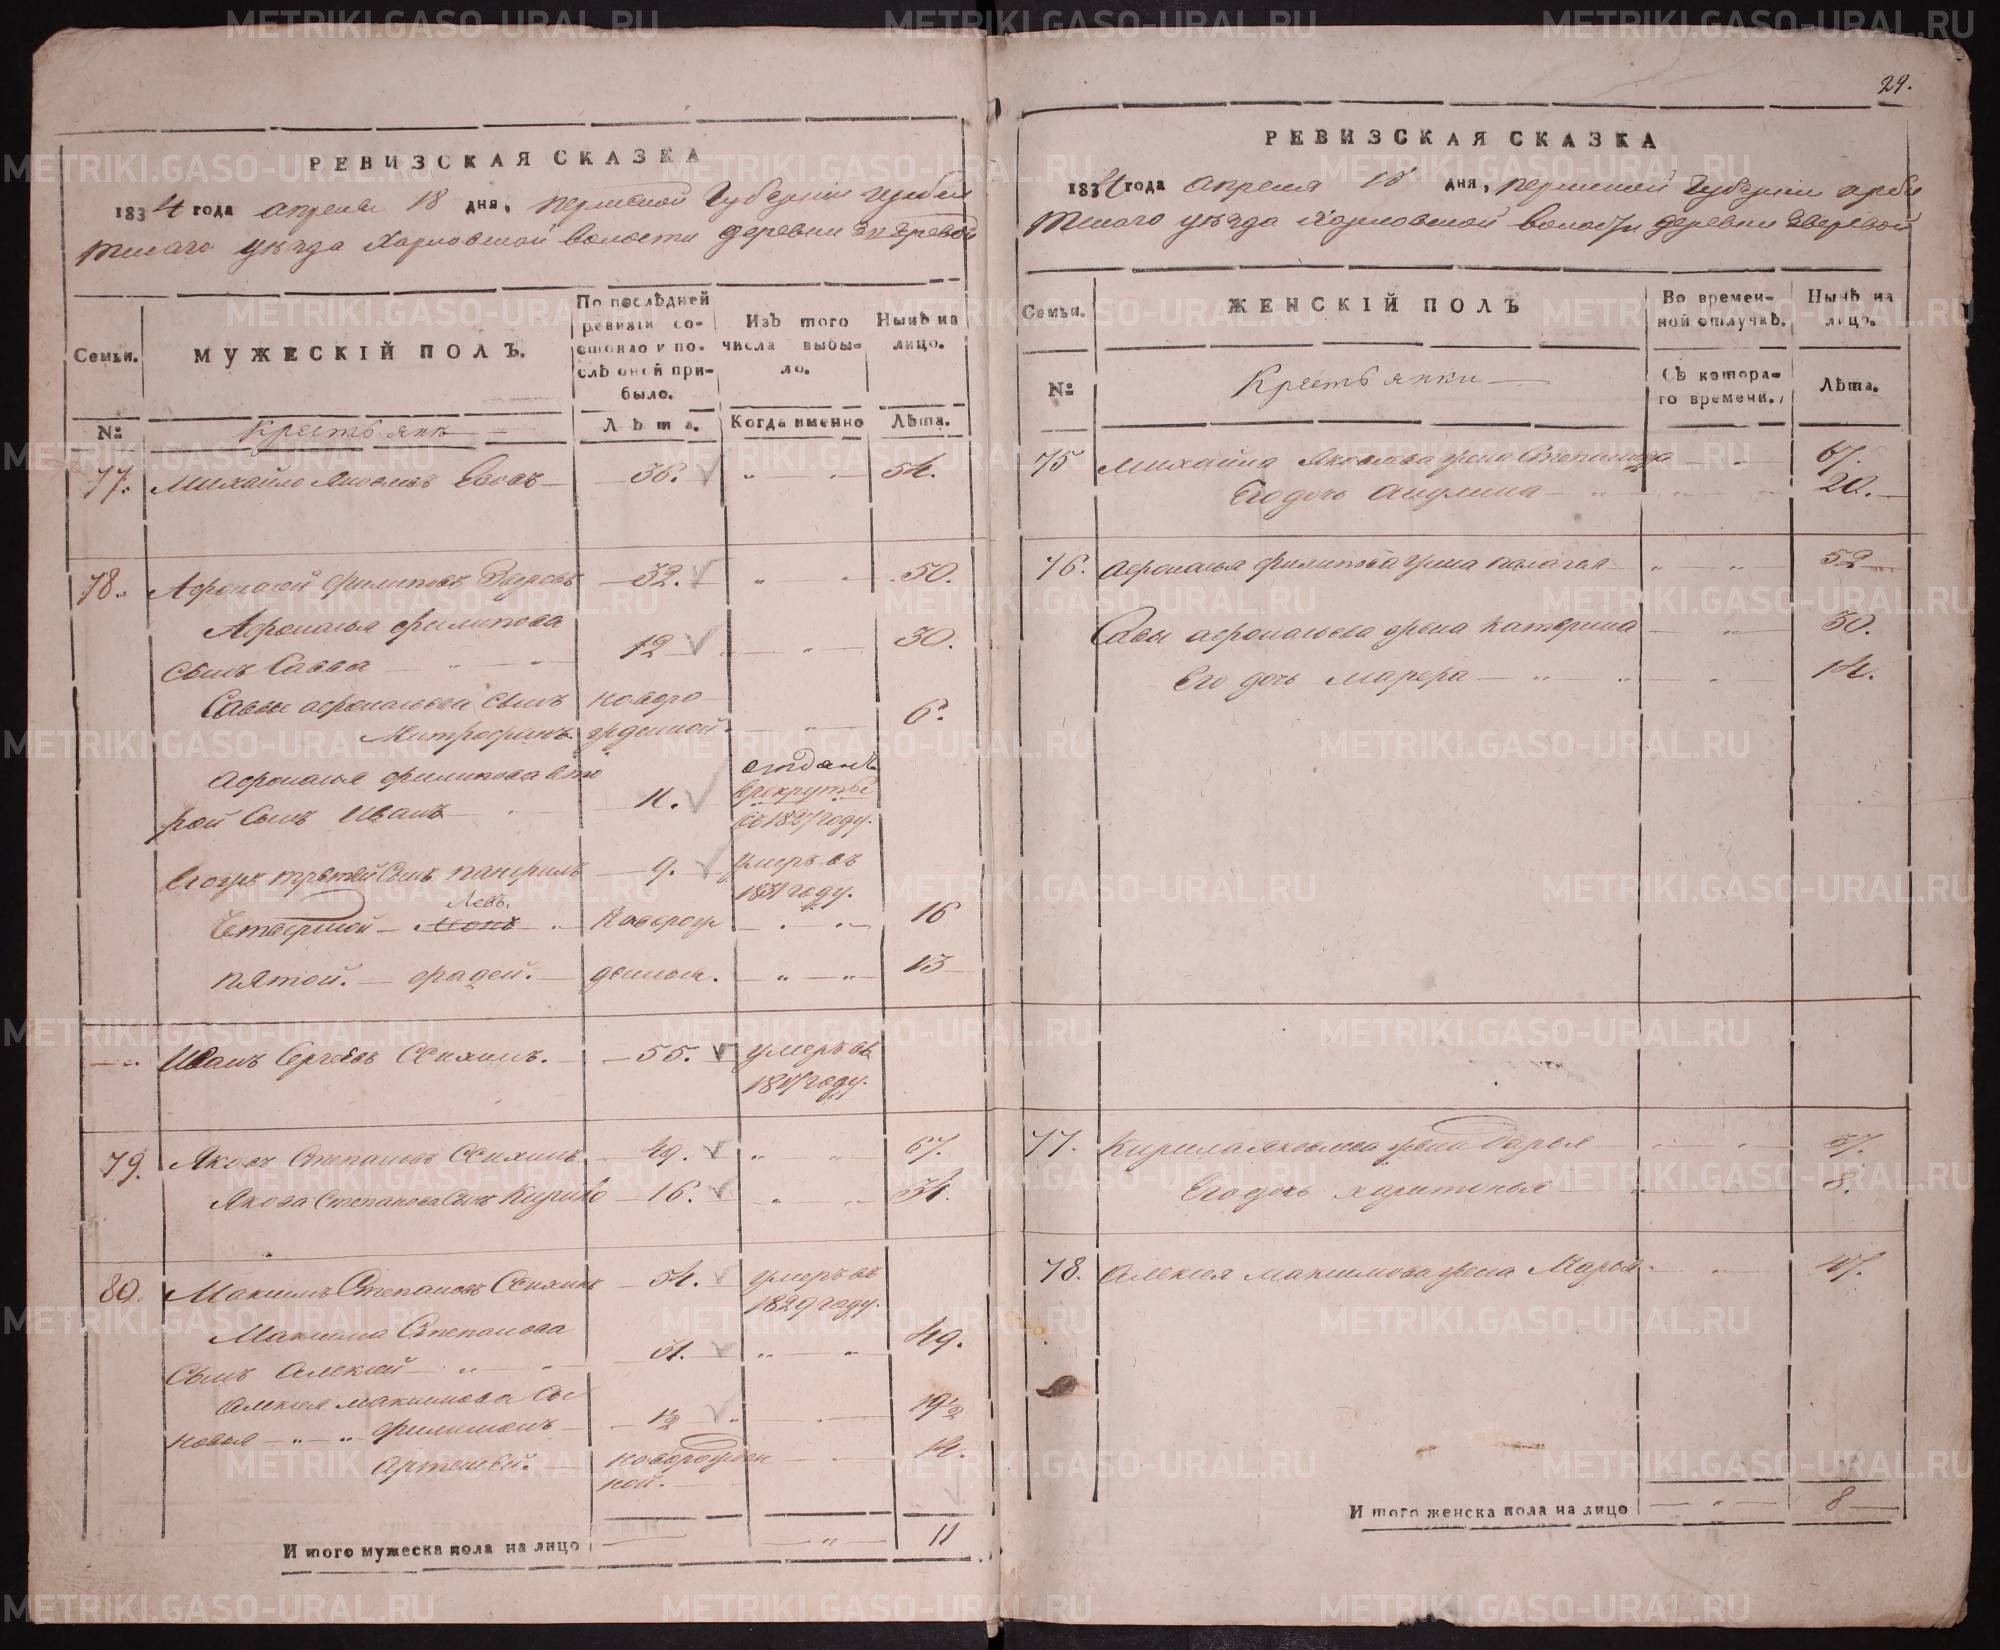 29.
РЕВИЗСКАЯ СКАЗКА
1834 года апреля 18 дня, пермской Губернии ирбит
скаго уезда Харловской волости деревни Зверевой
Семьи.
МУЖЕСКІЙ ПОЛЪ.
По послѣдней ревизіи состояло и послѣ оней прибыло.
Изъ того числа выбыло.
Нынѣ на лицо.
№
Крестьяне
Лѣта.
Когда именно
Лѣта.
77. Михайло Яковлевъ — 36. „ „ 54.
78. Афонасей Филиповъ — 32. „ „ 50.
Афонасья Филипова
сынъ Савва „ „ 12 — „ 30.
Саввы афонасьева сынъ новоро
Митрофанъ. жденной — „ 6.
Афонасья Филипова вто
рой сынъ Иванъ — 11. отданъ
в рекруты
въ 1827 году.
Егоръ третей сынъ — 9. умеръ въ
1831 году.
Левъ.
Четвертой — новорож — „ — 16
пятой. — фадей. — денной. — „ — „ 13
— „ Иванъ Сергеевъ — 55. умеръ въ
18 году.
79. Яковъ Степановъ — 49. „ „ 67.
Якова Степанова сынъ Кирило — 16. „ „ 34.
80. Максимъ Степановъ — 54. умеръ въ
1829 году.
Максима Степанова
сынъ Алексей — „ „ 31. „ „ 49.
Алексея максимова сы
новья — „ „ филимонъ — 1½ „ — 19½
артемей. — новорожден — „ 14.
ной.
Итого мужеска пола на лицо — „ — 11
РЕВИЗСКАЯ СКАЗКА
1834 года апреля 18 дня, пермской Губернии ирби
тскаго уезда Харловской волости деревни Зверевой
Семьи.
ЖЕНСКІЙ ПОЛЪ
Во временной отлучкѣ.
Нынѣ на лицо.
№
Крестьянки
Съ котораго времени.
Лѣта.
75 Михайла Яковлева жена Степанида — „ 67.
Его дочь Акулина — „ „ „ 20.
76. афонасья Филипова жена палагея — „ „ 52
Савы афонасьева жена катерина — „ 30.
Его дочь марфа — „ „ „ 14.
77. Кирила яковлева жена Дарья „ „ 37.
Его дочь харитонья — „ — 8.
78. алексея максимова жена Марья. — „ 47.
Итого женска пола на лицо — „ — 8
METRIKI.GASO-URAL.RU